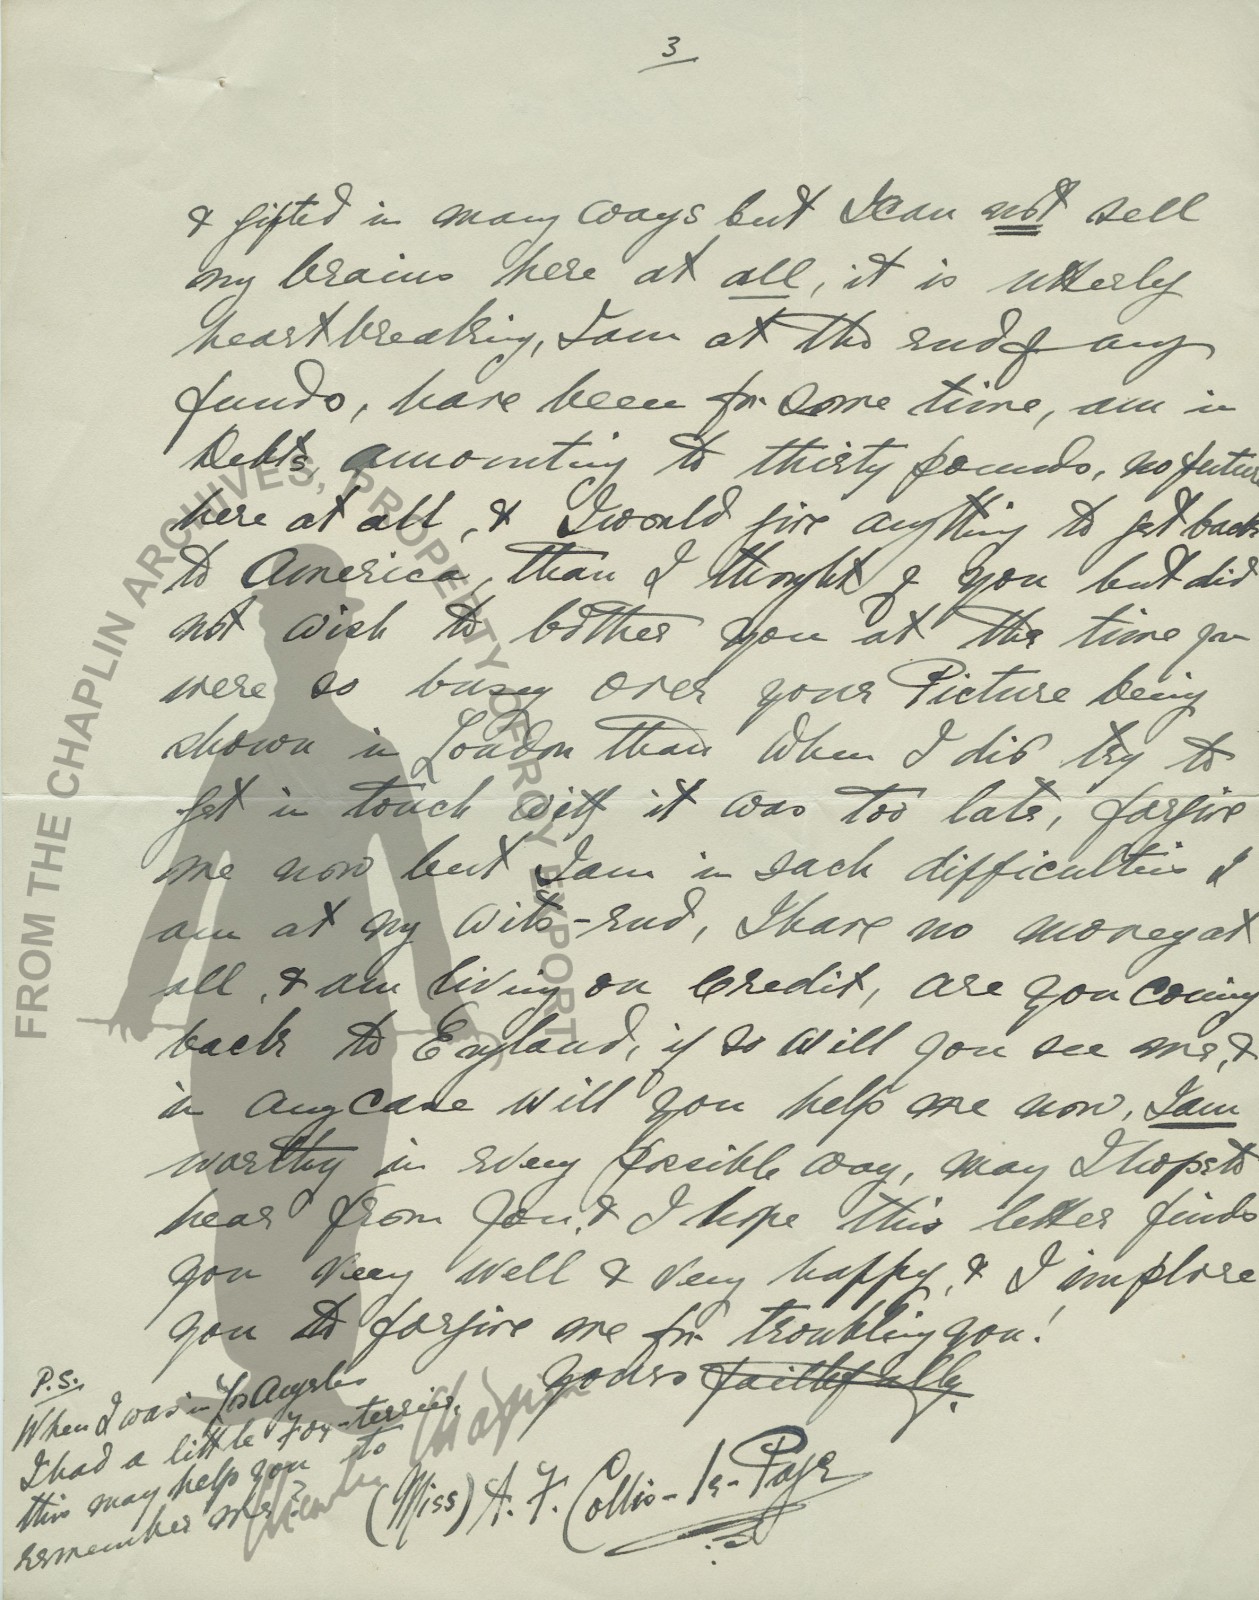 3
& gifted in many ways but I can not sell
my brains here at all, it is utterly
heartbreaking, I am at the end of any
funds, have been for some time, am in
Debts amounting to thirty pounds, no future
here at all, & I would give anything to get back
to America, than I thought of you but did
not wish to bother you at the time you
were so busy over your Picture being
shown in London than when I did try to
get in touch with it was too late, forgive
me now but I am in such difficulties I
am at my wits-end, I have no money at
all, & am living on Credit, are you coming
back to England, if so will you see me, &
in any case will you help me now, I am
worthy in every possible way, may I hope to
hear from you, & I hope this letter finds
you very well & very happy, & I implore
you to forgive me for troubling you!
yours faithfully.
(Miss) A. F. Collis-le-Page
P.S.
When I was in Los Angeles
I had a little Fox-terrier,
this may help you to
remember me?
FROM THE CHAPLIN ARCHIVES, PROPERTY OF ROY EXPORT
Charlie Chaplin